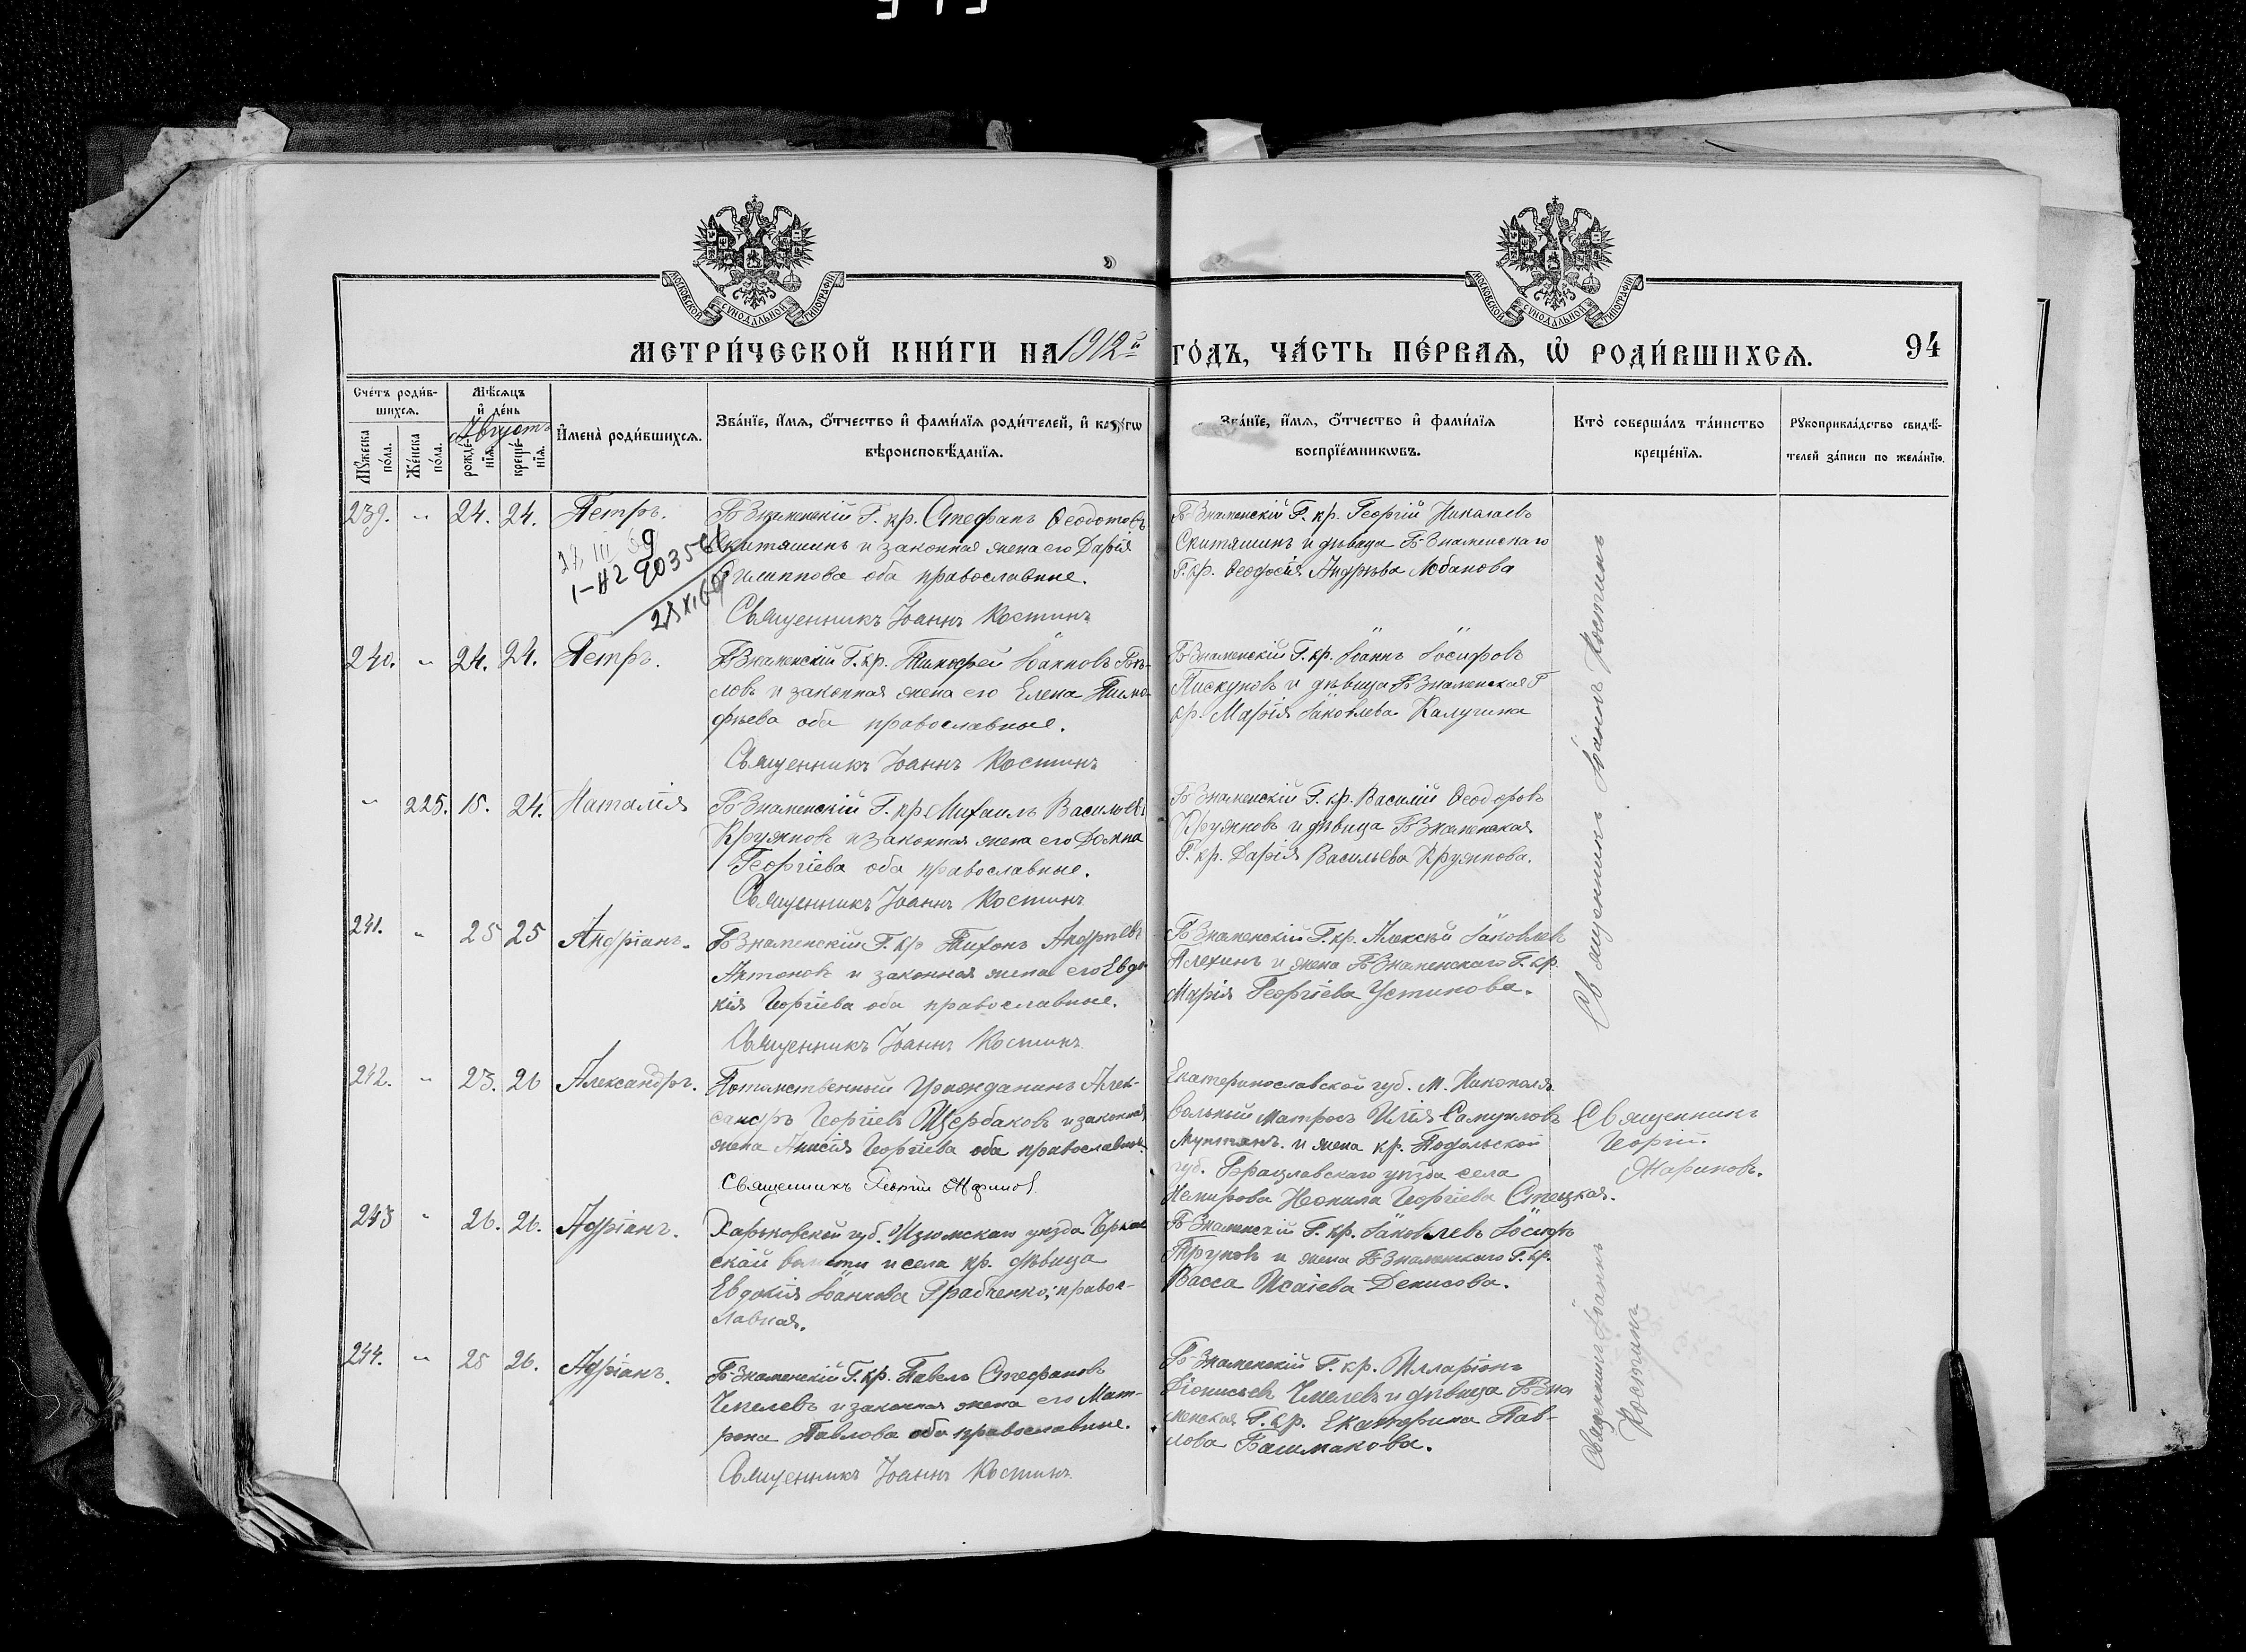 МОСКОВСКОЙ СѴНОДАЛЬНОЙ ТИПОГРАФІИ
МОСКОВСКОЙ СѴНОДАЛЬНОЙ ТИПОГРАФІИ
МЕТРИ́ЧЕСКОЙ КНИ́ГИ НА 1912й ГО́ДЪ, ЧА́СТЬ ПЕ́РВАЯ, Ѽ РОДИ́ВШИХСЯ.
94
Сче́тъ роди́в-
шихся.
Мѣ́сяцъ
и҆ де́нь
Августъ
Мꙋ́жеска
по́ла.
Же́нска
по́ла.
рожде́-
нїя.
креще́-
нїя.
И҆мена̀ роди́вшихся.
Зва́нїе, и҆́мя, ѻ҆́тчество и҆ фами́лїя роди́телей, и҆
вѣроисповѣ́данїя.
Зва́нїе, и҆́мя, ѻ҆́тчество и҆ фами́лїя
воспрїе́мникωвъ.
Кто̀ соверша́лъ та́инство
креще́нїя.
Рꙋкоприкла́дство свидѣ́-
телей за́писи по жела́нїю.
239. " 24. 24. Петръ.
Б Знаменскій Г. кр. Стефанъ Ѳеодотовъ
Скитяшинъ и законная жена его Дарія
Филиппова оба православные.
Священникъ Іоаннъ Костинъ
Б Знаменскій Г. кр. Георгій Николаевъ
Скитяшинъ и дѣвица Б-Знаменскаго
Г. кр. Ѳеодосія Андрѣева Лобанова
Священникъ Іоаннъ Костинъ
240. " 24. 24. Петръ.
Б Знаменскій Г. кр. Тимофей Іоанновъ Бѣ-
ловъ и законная жена его Елена Тимо-
фѣева оба православные.
Священникъ Іоаннъ Костинъ
Б Знаменскій Г. кр. Іоаннъ Іосифовъ
Пискуновъ и дѣвица Б Знаменская Г
кр. Марія Іаковлева Калугина
" 225. 15. 24. Наталія
Б-Знаменскій Г. кр Михаилъ Васильевъ
Кружновъ и законная жена его Домна
Георгіева оба православные.
Священникъ Іоаннъ Костинъ
Б Знаменскій Г. кр. Василій Ѳеодоровъ
Кружновъ и дѣвица Б Знаменская
Г. кр. Дарія Васильева Кружнова.
241. " 25 25 Андріанъ.
Б Знаменскій Г. кр Тихонъ Андрѣевъ
Антоновъ и законная жена его Евдо-
кія Георгіева оба православные.
Священникъ Іоаннъ Костинъ
Б Знаменскій Г. кр. Алексѣй Іаковлевъ
Алехинъ и жена Б Знаменскаго Г. кр.
Марія Георгіева Устинова.
242. " 23. 26 Александръ.
Потомственный Гражданинъ Алек-
сандръ Георгіевъ Щербаковъ и законная
жена Анисія Георгіева оба православные.
Священникъ Георгій Мариновъ
Екатеринославской губ. М. Никополя
вольный матросъ Илія Самуиловъ
и жена кр. Подольской
губ. Брацлавскаго уѣзда села
Немирова Неонила Георгіева Стецкая.
Священникъ
Георгій
Мариновъ.
243 " 26. 26. Адріанъ.
Харьковской губ. Изюмскаго уѣзда
волости и села кр. дѣвица
Евдокія Іоаннова Грабченко; правос-
лавная.
Б Знаменскій Г. кр. Іаковлевъ Іосифъ
Труновъ и жена Б Знаменскаго Г. кр.
Васса Исаіева Денисова.
Священникъ Іоаннъ
Костинъ
244. " 25 26. Адріанъ.
Б Знаменскій Г. кр. Павелъ Стефановъ
Чмелевъ и законная жена его Мат-
рона Павлова оба православные.
Священникъ Іоаннъ Костинъ
Б-Знаменскій Г. кр. Илларіонъ
Діонисіевъ Чмелевъ и дѣвица Б Зна
менская Г. кр. Екатерина Пав-
лова Башмакова.